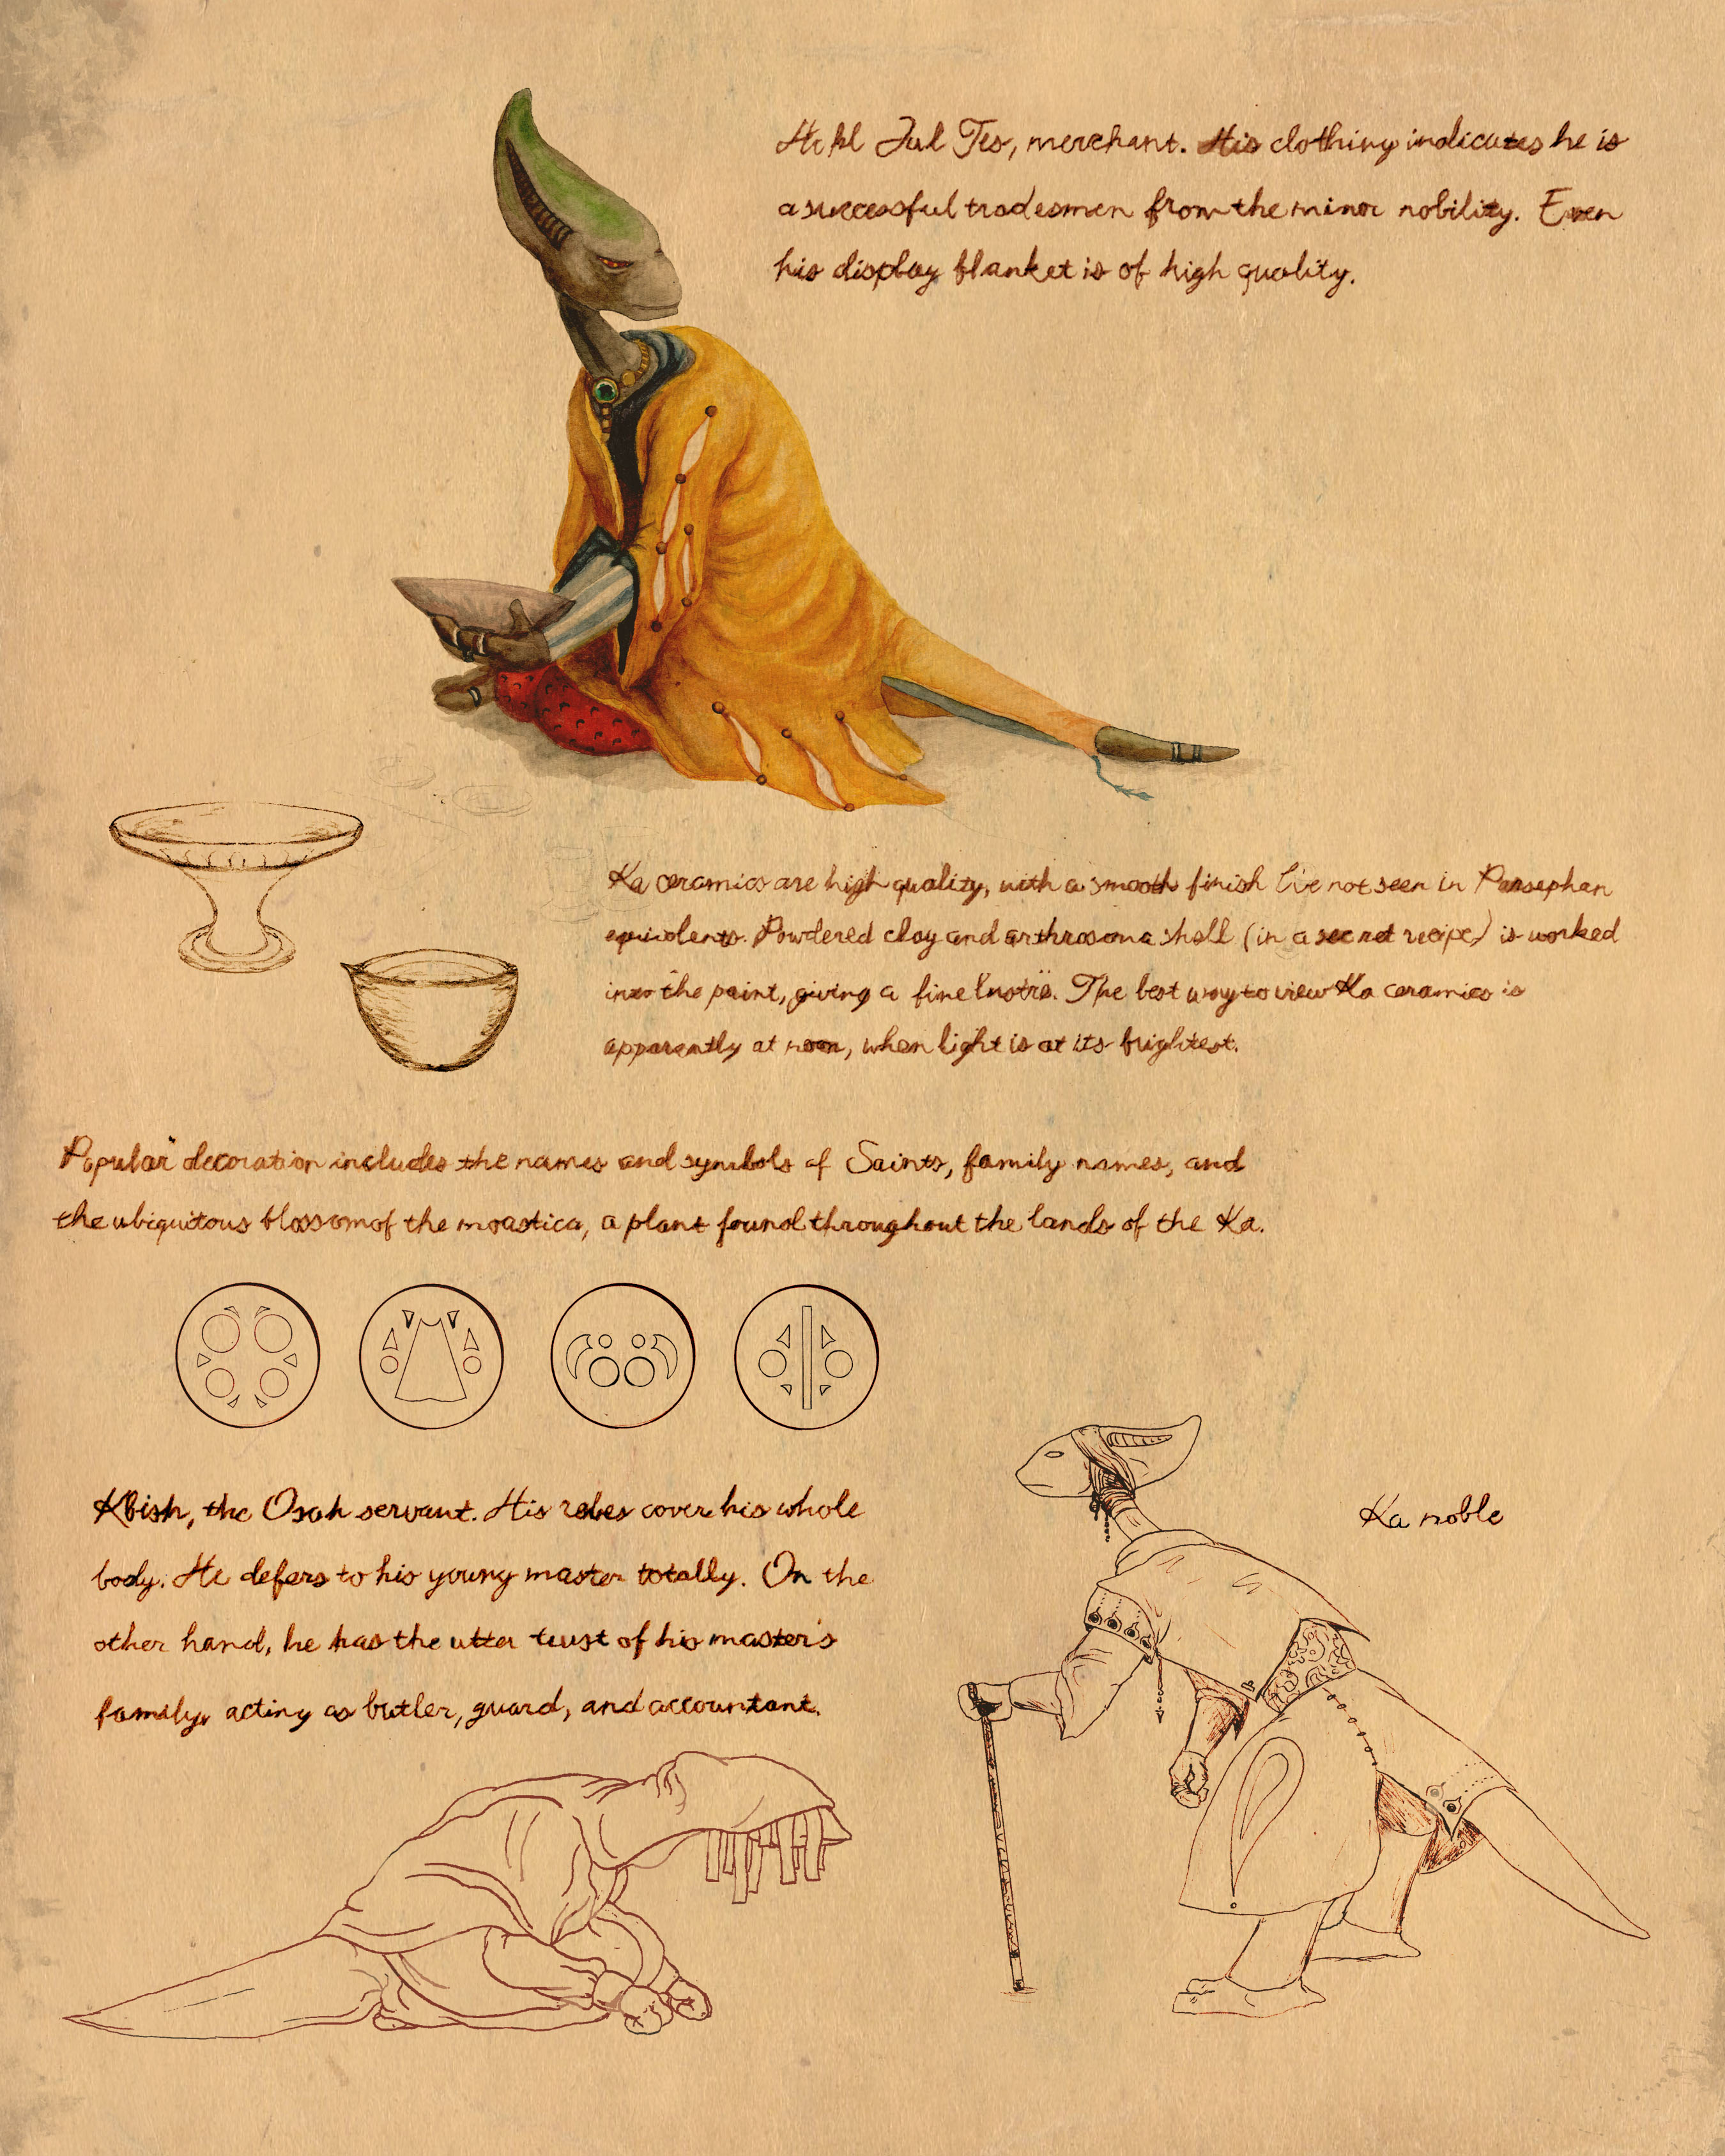 Hekl Jul Tes, merchant. His clothing indicates he is
a successful tradesmen from the minor nobility. Even
his display blanket is of high quality.
Ka ceramics are high quality, with a smooth finish I've not seen in Parsephan
equivolents. Powdered clay and arthrosoma shell (in a secret recipe) is worked
into the paint, giving a fine lustre. The best way to view Ka ceramics is
apparently at noon, when light is at its brightest.
Popular decoration includes the names and symbols of Saints, family names, and
the ubiquitous blossom of the moastica, a plant found throughout the lands of the Ka.
Kbish, the Osah servant. His robes cover his whole
body. He defers to his young master totally. On the
other hand, he has the utter trust of his master's
family, acting as butler, guard, and accountant.
Ka noble